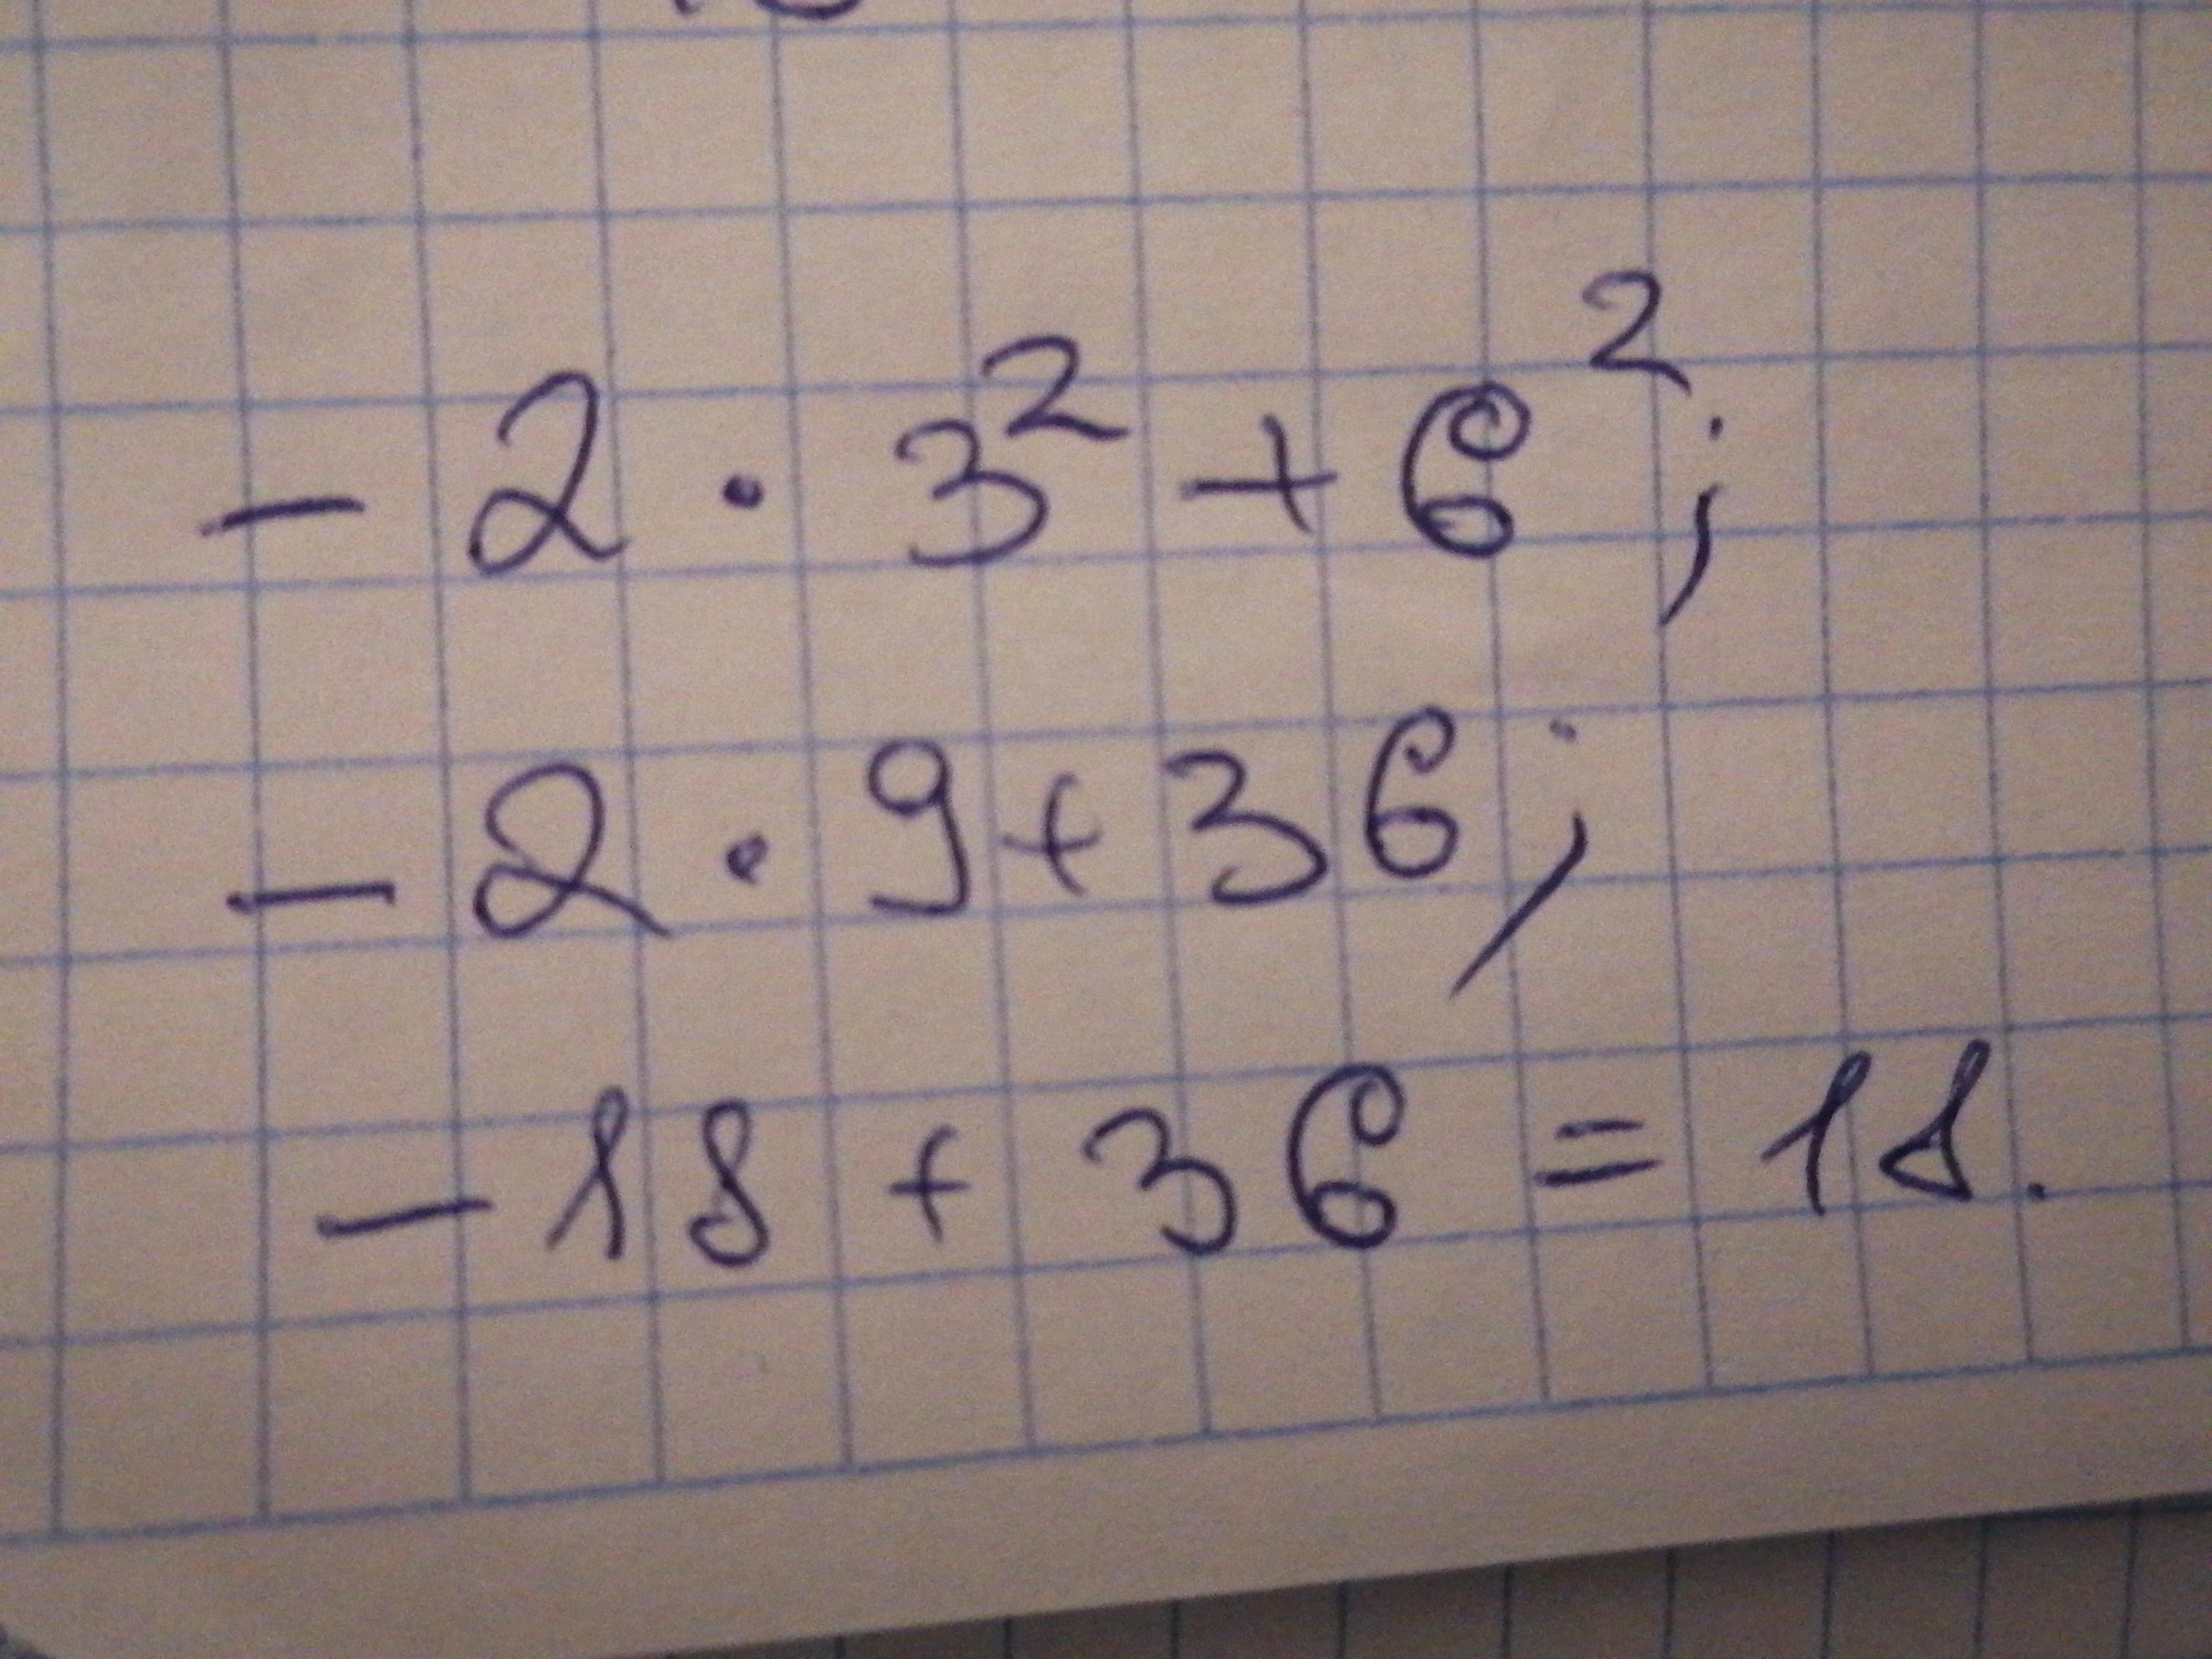 - 2 · 3² + 6²;
- 2 · 9 + 36;
- 18 + 36 = 18.